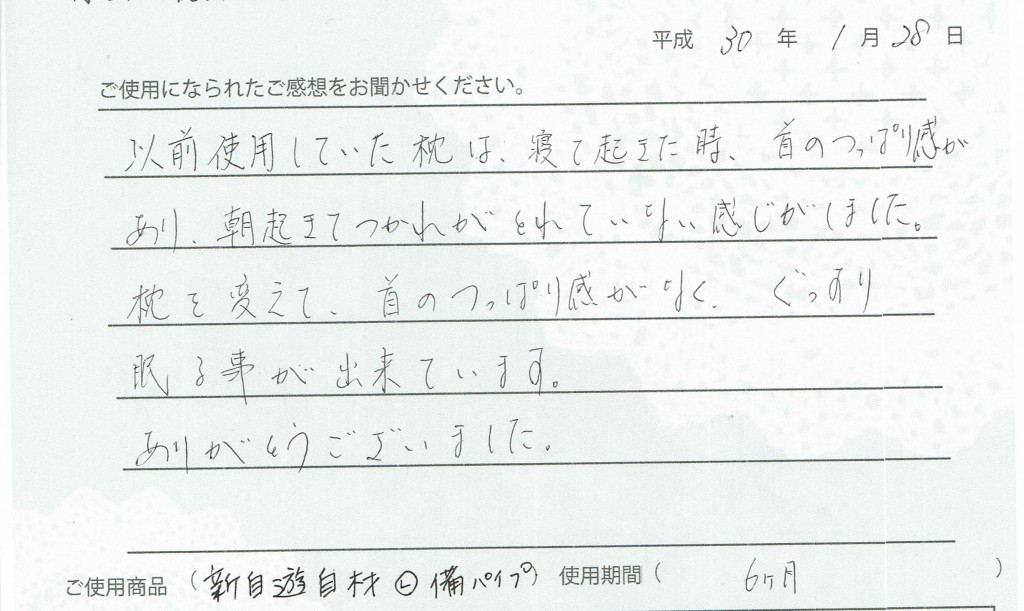 平成 30 年 1 月 28 日
ご使用になられたご感想をお聞かせください。
以前使用していた枕は、寝て起きた時、首のつっぱり感が
あり、朝起きてつかれがとれていない感じがしました。
枕を変えて、首のつっぱり感がなく、ぐっすり
眠る事が出来ています。
ありがとうございました。
ご使用商品 (新自遊自材 備パイプ) 使用期間 ( 6ヶ月 )